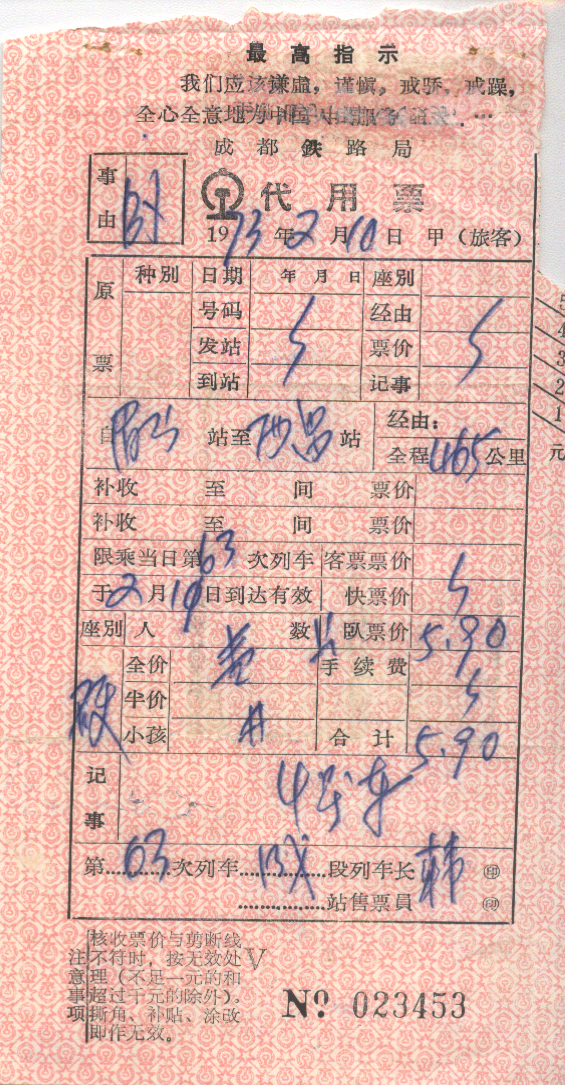 最高指示
我们应该谦虚，谨慎，戒骄，戒躁，
全心全意地为中国人民服务
成都铁路局
事由 代用票
1973年2月10日 甲（旅客）
原票 种别 日期 年月日 座别
号码 经由
发站 票价
到站 记事
自眉山站至西昌站 经由：
全程465公里
补收 至 间 票价
补收 至 间 票价
限乘当日第63次列车 客票票价
于2月10日到达有效 快票价
座别 人数 卧票价 5.90
硬 全价 手续费
半价
小孩 合计 5.90
记事
第63次列车 段列车长 韩 印
站售票員 印
注意事项
核收票价与剪断线
不符时，按无效处
理（不足一元的和
超过千元的除外）。
撕角、补贴、涂改
即作无效。
5
4
3
2
1
元
№ 023453